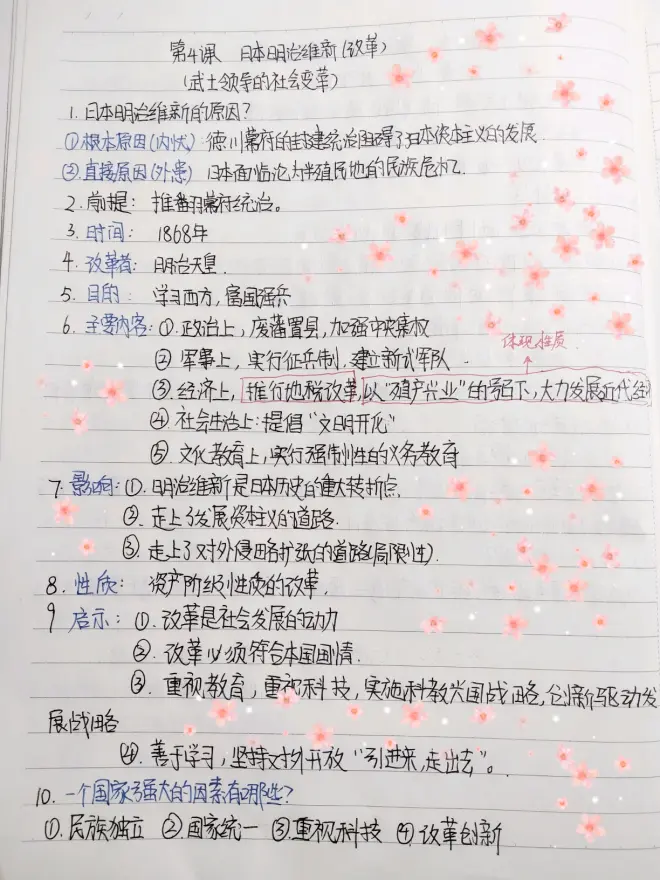 第4课 日本明治维新(改革)
(武士领导的社会变革)
1. 日本明治维新的原因?
①根本原因(内忧) 德川幕府的封建统治阻碍了日本资本主义的发展.
②直接原因(外患) 日本面临沦为半殖民地的民族危机.
2. 前提: 推翻幕府统治。
3. 时间: 1868年
4. 改革者: 明治天皇.
5. 目的: 学习西方,富国强兵
6. 主要内容:①.政治上,废藩置县,加强中央集权
体现性质
② 军事上,实行征兵制,建立新式军队.
③.经济上,推行地税改革,以"殖产兴业"的号召下,大力发展近代经
④ 社会生活上:提倡"文明开化"
⑤.文化教育上,实行强制性的义务教育
7. 影响:①.明治维新是日本历史的重大转折点.
②.走上了发展资本主义的道路.
③.走上了对外侵略扩张的道路(局限性).
8. 性质: 资产阶级性质的改革.
9 启示:①.改革是社会发展的动力
②.改革必须符合本国国情.
③.重视教育,重视科技,实施科教兴国战略,创新驱动发
展战略
④.善于学习,坚持对外开放"引进来,走出去"。
10. 一个国家强大的因素有哪些?
①.民族独立 ②国家统一 ③重视科技 ④改革创新